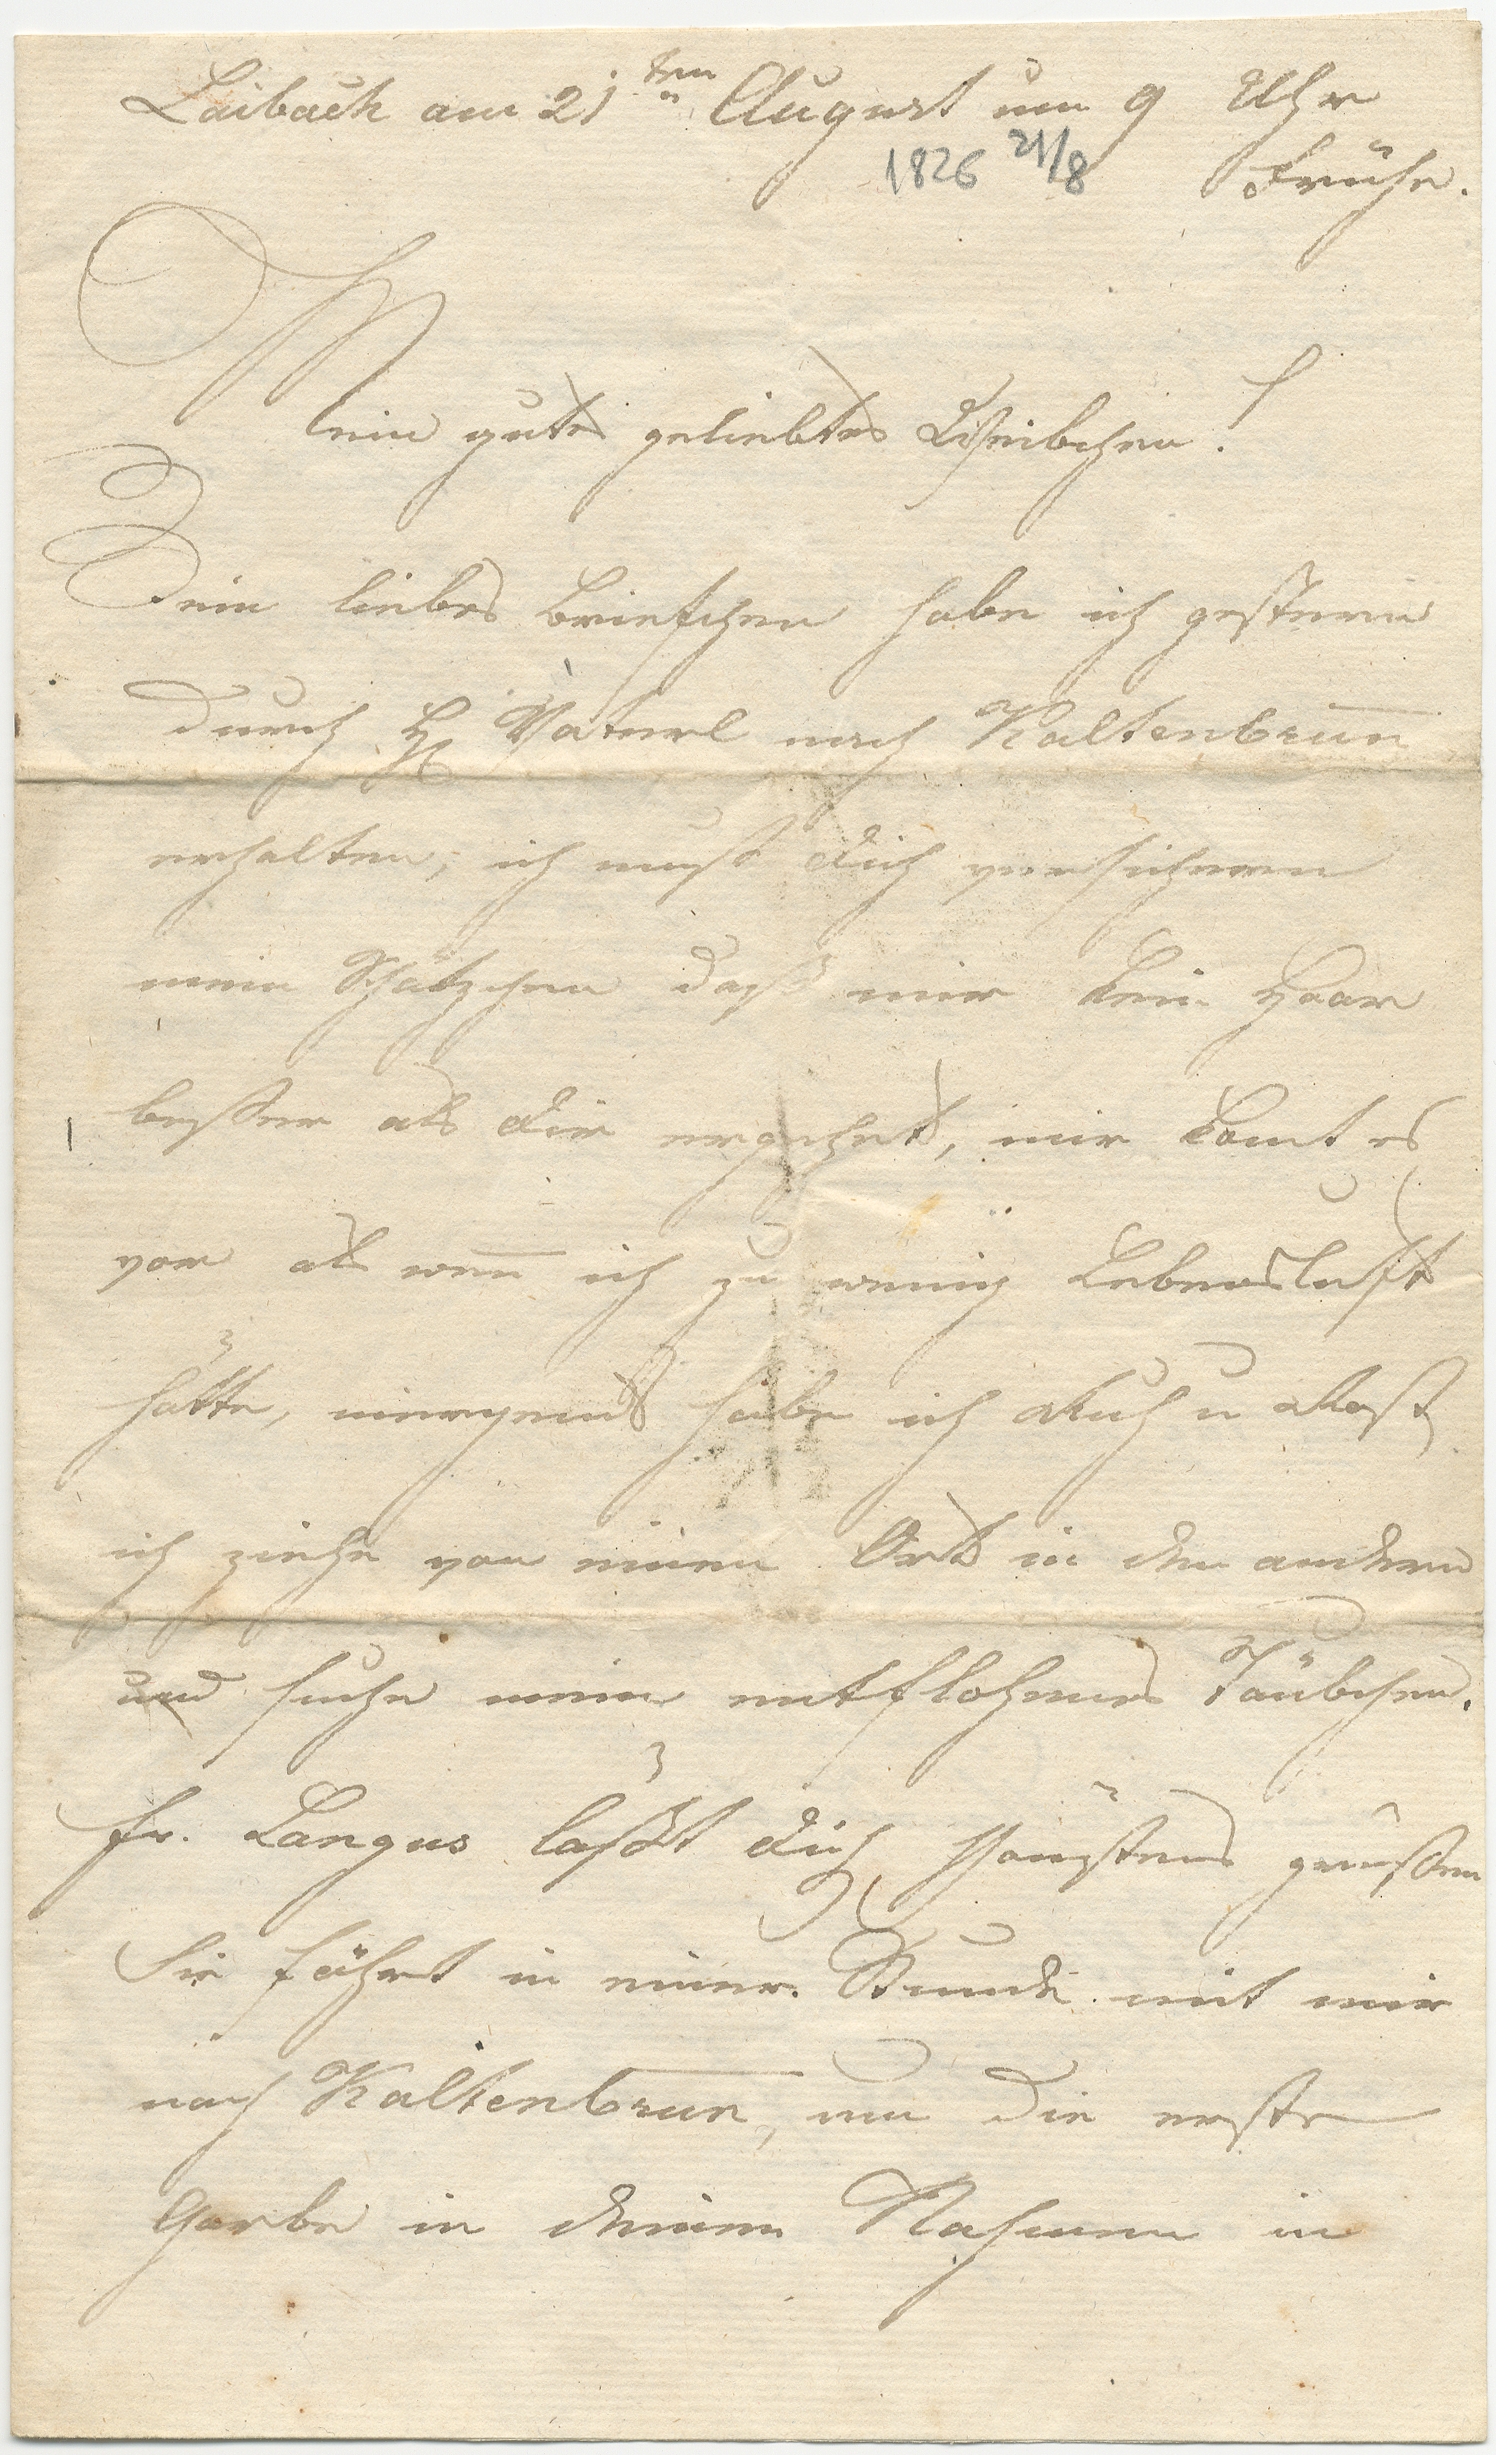 Laibach am 21ten August um 9 Uhr
1826 21/8 Frühe.
Mein gutes geliebtes Weibchen!
Dein liebes Briefchen habe ich gestern
durch H Vaterl nach Kaltenbrun̅
erhalten, ich muß dich versichern
mein Schätzchen daß mir kein Haar
besser als dir ergehet, mir komt es
vor als wen̅ ich zu wenig Lebensluft
hätte, niergends habe ich Ruh u Rast
ich ziehe von einen Ort in den andern
und suche mein entflohenes Täubchen.
Fr. Langus laßt dich schönstens grüßen
Sie fährt in einer Stunde mit mir
nach Kaltenbrun̅, um die erste
Garbe in deinem Nahmen in